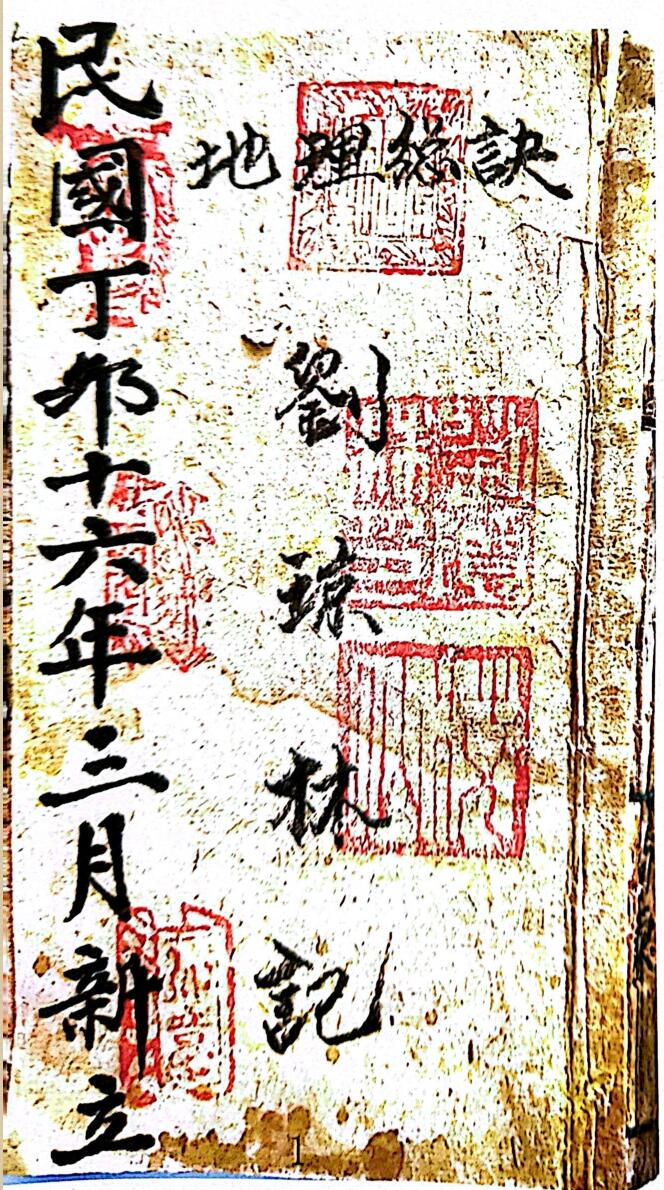 地理総訣
劉琼林記
民國丁卯十六年三月新立
1